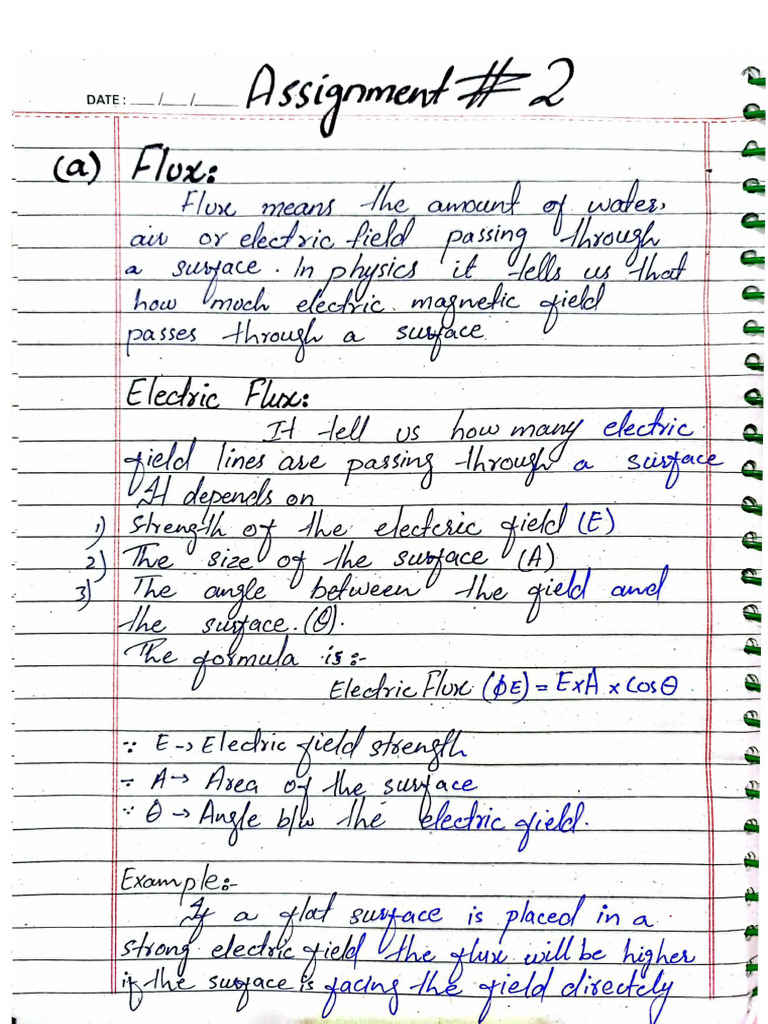 DATE: __/__/____ Assignment # 2
(a) Flux:
Flux means the amount of water,
air or electric field passing through
a surface. In physics it tells us that
how much electric. magnetic field
passes through a surface.
Electric Flux:
It tell us how many electric
field lines are passing through a surface
It depends on
1) Strength of the electeric field (E)
2) The size of the surface (A)
3) The angle between the field and
the surface. (θ).
The formula is:-
Electric Flux (ϕE) = E×A × Cosθ
∵ E → Electric field strength
∵ A → Area of the surface
∵ θ → Angle b/w the electric field.
Example:-
If a flat surface is placed in a
strong electric field the flux will be higher
if the surface is facing the field direectely